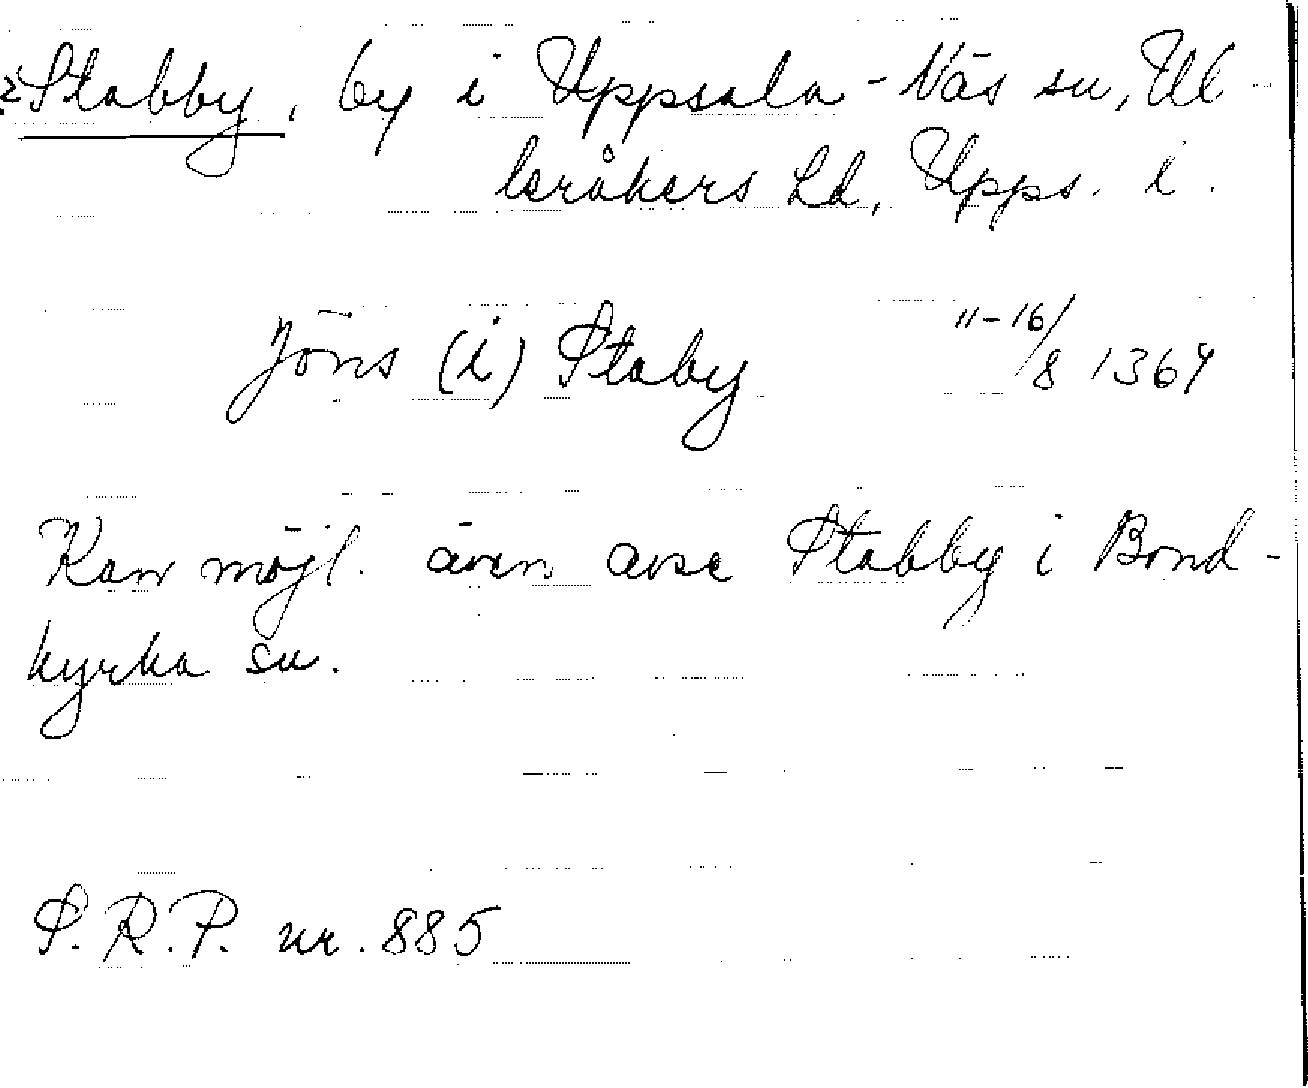 2 Stabby, by i Uppsala-Näs sn, Ul-
leråkers hd, Upps. l.
Jöns (i) Staby 11-16/8 1369
Kan möjl. även avse Stabby i Bond-
kyrka sn.
S.R.P. nr. 885